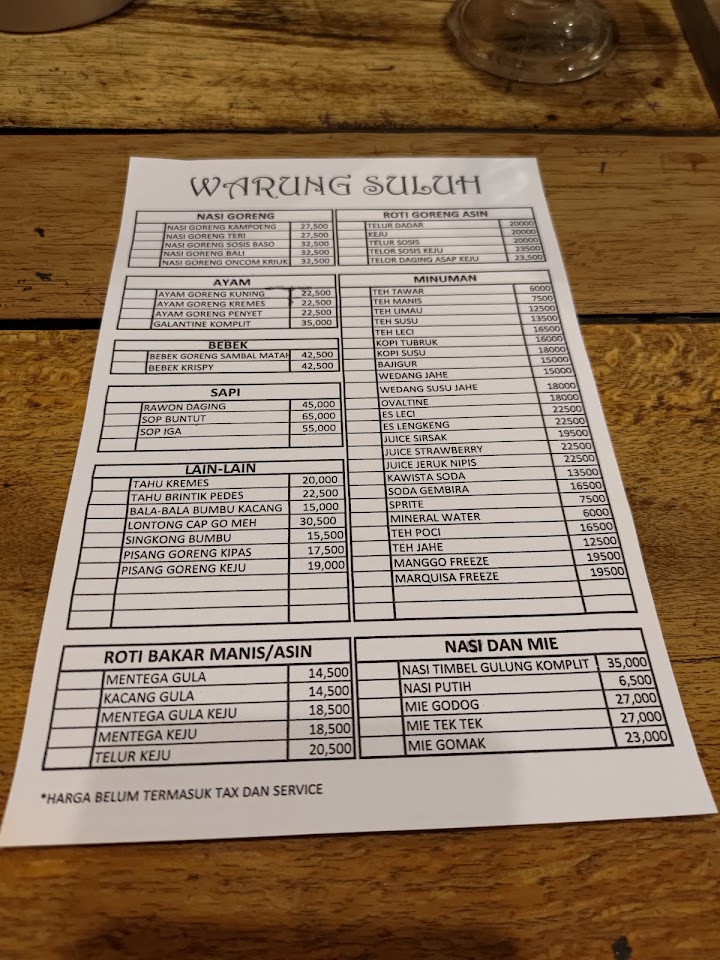 WARUNG SULUH
NASI GORENG
NASI GORENG KAMPOENG 27,500
NASI GORENG TERI 27,500
NASI GORENG SOSIS BASO 32,500
NASI GORENG BALI 32,500
NASI GORENG ONCOM KRIUK 32,500
AYAM
AYAM GORENG KUNING 22,500
AYAM GORENG KREMES 22,500
AYAM GORENG PENYET 22,500
GALANTINE KOMPLIT 35,000
BEBEK
BEBEK GORENG SAMBAL MATAH 42,500
BEBEK KRISPY 42,500
SAPI
RAWON DAGING 45,000
SOP BUNTUT 65,000
SOP IGA 55,000
LAIN-LAIN
TAHU KREMES 20,000
TAHU BRINTIK PEDES 22,500
BALA-BALA BUMBU KACANG 15,000
LONTONG CAP GO MEH 30,500
SINGKONG BUMBU 15,500
PISANG GORENG KIPAS 17,500
PISANG GORENG KEJU 19,000
ROTI BAKAR MANIS/ASIN
MENTEGA GULA 14,500
KACANG GULA 14,500
MENTEGA GULA KEJU 18,500
MENTEGA KEJU 18,500
TELUR KEJU 20,500
ROTI GORENG ASIN
TELUR DADAR 20000
KEJU 20000
TELUR SOSIS 20000
TELOR SOSIS KEJU 23500
TELOR DAGING ASAP KEJU 23,500
MINUMAN
TEH TAWAR 6000
TEH MANIS 7500
TEH LIMAU 12500
TEH SUSU 13500
TEH LECI 16500
KOPI TUBRUK 16000
KOPI SUSU 18000
BAJIGUR 15000
WEDANG JAHE 15000
WEDANG SUSU JAHE 18000
OVALTINE 18000
ES LECI 22500
ES LENGKENG 22500
JUICE SIRSAK 19500
JUICE STRAWBERRY 22500
JUICE JERUK NIPIS 22500
KAWISTA SODA 13500
SODA GEMBIRA 16500
SPRITE 7500
MINERAL WATER 6000
TEH POCI 16500
TEH JAHE 12500
MANGGO FREEZE 19500
MARQUISA FREEZE 19500
NASI DAN MIE
NASI TIMBEL GULUNG KOMPLIT 35,000
NASI PUTIH 6,500
MIE GODOG 27,000
MIE TEK TEK 27,000
MIE GOMAK 23,000
*HARGA BELUM TERMASUK TAX DAN SERVICE